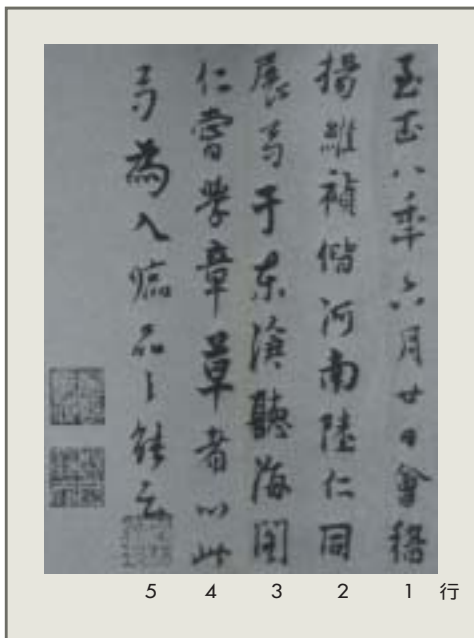 至正八秊六月廿日會稽
楊維禎偕河南陸仁同
展卷于東滄聽海閣
仁嘗學章草者以此
卷為入臨品之能云
5 4 3 2 1 行